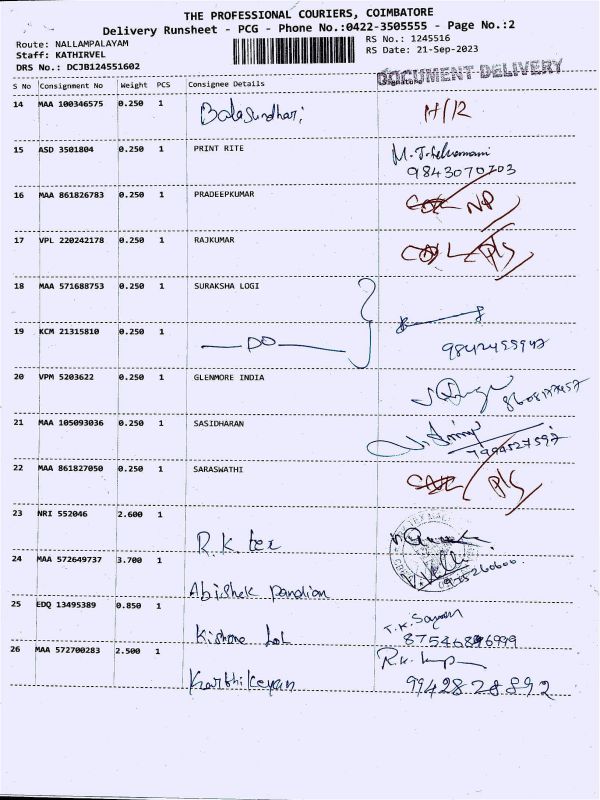 THE PROFESSIONAL COURIERS, COIMBATORE
Delivery Runsheet - PCG - Phone No.:0422-3505555 - Page No.:2
Route: NALLAMPALAYAM RS No.: 1245516
Staff: KATHIRVEL RS Date: 21-Sep-2023
DRS No.: DCJB124551602 DOCUMENT DELIVERY
S No Consignment No Weight PCS Consignee Details Signature
14 MAA 100346575 0.250 1 Balasundhari H/12
15 ASD 3501804 0.250 1 PRINT RITE
9843070703
16 MAA 861826783 0.250 1 PRADEEPKUMAR NP
17 VPL 220242178 0.250 1 RAJKUMAR
18 MAA 571688753 0.250 1 SURAKSHA LOGI
19 KCM 21315810 0.250 1 DO
20 VPM 5203622 0.250 1 GLENMORE INDIA
21 MAA 105093036 0.250 1 SASIDHARAN
7994527597
22 MAA 861827050 0.250 1 SARASWATHI
23 NRI 552046 2.600 1 R.K. tex
24 MAA 572649737 3.700 1 Abishek Pandian
25 EDQ 13495389 0.850 1 Kishore Lol
26 MAA 572700283 2.500 1 Karthikeyan
9942828892